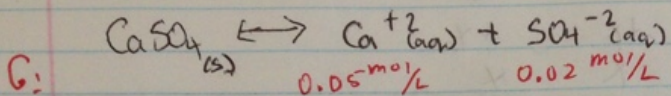 CaSO₄(s) ⟷ Ca⁺²(aq) + SO₄⁻²(aq)
C: 0.05 mol/L 0.02 mol/L